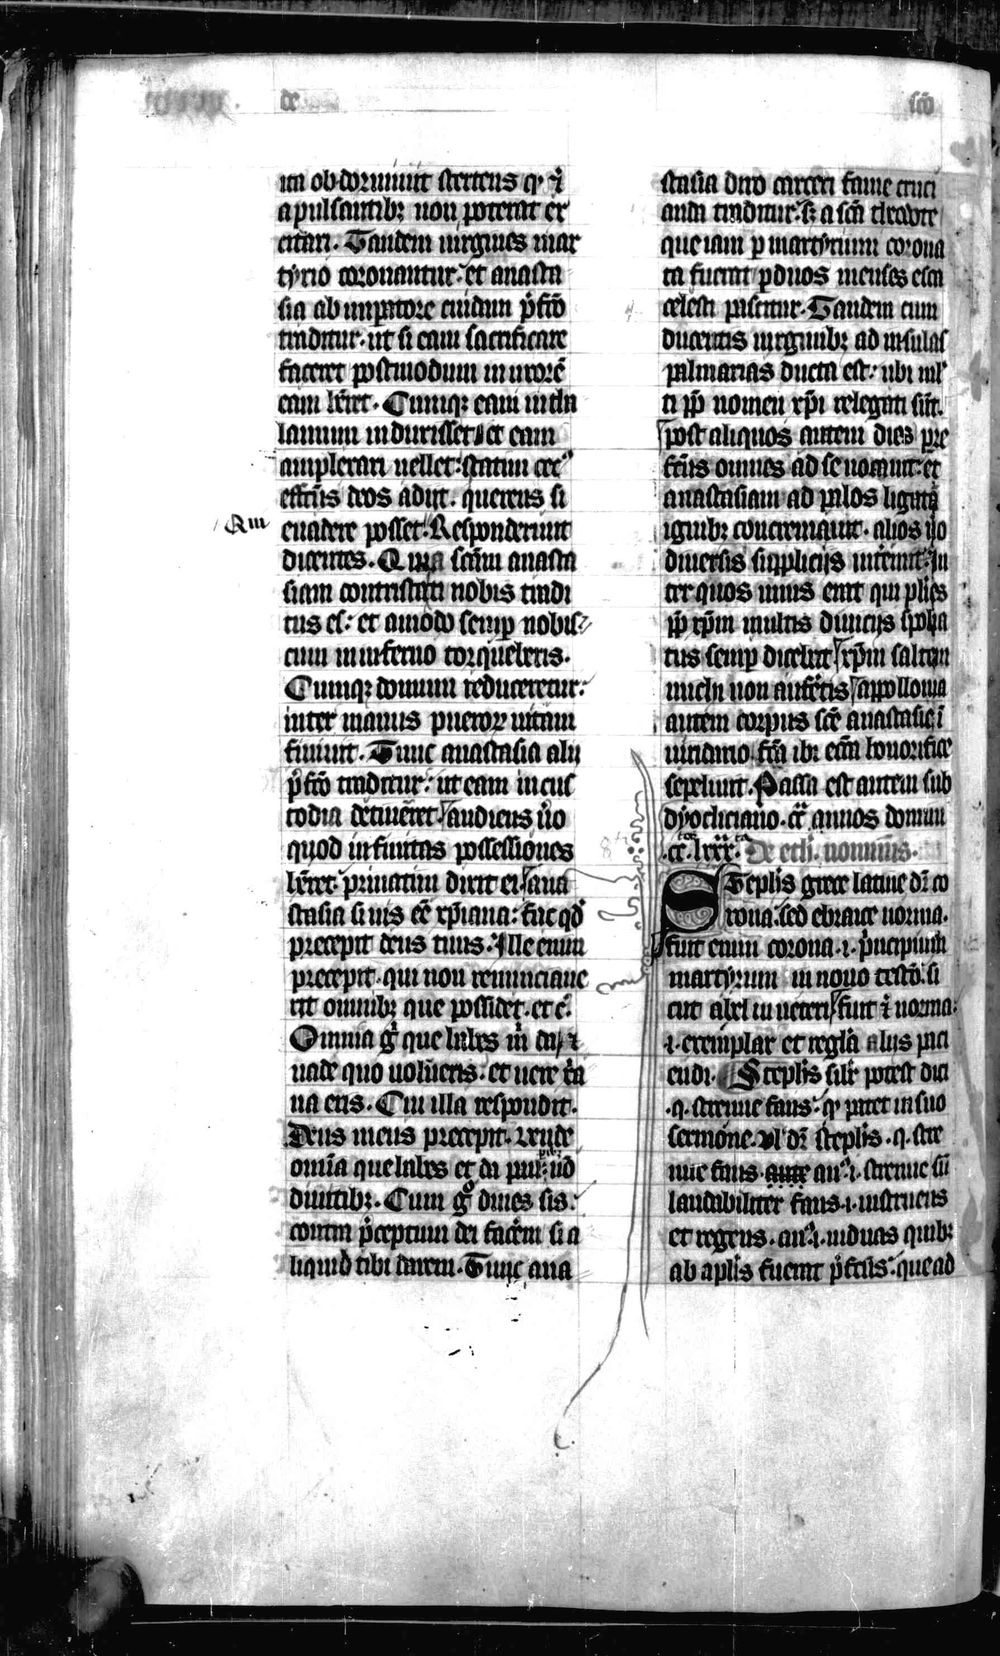 de
sc̄o
ita obdormiuit stertens qͥ etiā
a pulsantibꝫ non poterat ex
citari. Tandem uirgines mar
tyrio coronantur: et anasta
sia ab imp̄atore cuidam p̄fc̄o
traditur. ut si eam sacrificare
faceret postmodum in uxorē
eam hr̄et. Cumqꝫ eam in tha
lamum induxisset et eam
amplexari uellet: statim cec9
effect9 deos adijt. querens si
euadere posset. Responderunt
dicentes. Quia sc̄am anasta
siam contristasti nobis tradi
tus es: et amodo semp̄ nobis
cum in inferno torqueberis.
Cumqꝫ domum reduceretur:
inter manus pueroꝝ uitam
finiuit. Tunc anastasia alij
p̄fc̄o traditur: ut eam in cus
todia detinēret. audiens u̇o
quod infinitas possessiones
hr̄et. priuatim dixit ei. ana
stasia si uis ēe xp̄iana: fac qd̓
precepit deus tuus. Ille enim
precepit. qui non renunciaue
rit omnibꝫ que possidet. et cͣ.
Omnia gͦ que habes m̓ da. et
uade quo uolueris. et uere xp̄ia
na eris. Cui illa respondit.
Deus meus precepit. uende
omīa que habes et da paup̄ibꝫ: nō
diuitibꝫ. Cum gͦ diues sis:
contra p̄ceptum dei facerem si a
liquid tibi darem. Tunc ana
Qm
stasia diro carceri fame cruci
anda traditur: sꝫ a sc̄a theodote
que iam p̄ martyrium corona
ta fuerat p̄ duos menses esca
celesti pascitur. Tandem cum
ducentis uirginibꝫ ad insulas
palmarias ducta est: ubi mͣl
ti pp̄ nomen xp̄i relegati sūt.
post aliquos autem dies pre
fect9 omnes ad se uocauit: et
anastasiam ad palos ligatā
ignibꝫ concremauit. alios u̇o
diuersis supplicijs interemit. In
ter quos unus erat qui pl̄ies
pp̄ xp̄m multis diuicijs spolia
tus semp̄ dicebat. xp̄m saltem
michi non auferetis. appollonia
autem corpus sc̄e anastasie ī
uiridario. fc̄a ibi ecc̄a honorifice
sepeliuit. Passa est autem sub
dyocliciano. cͣ annos domini
.cc̄.lxxx. De eth. nominis.
Stephs grece latine dr̄ co
rona. sed ebraice norma.
fuit enim corona .i. p̄ncipium
martyrum in nouo testō. si
cut abel in ueteri. fuit et norma:
.i. exemplar et regl̄a alijs paci
endi. Stephs sil̄r potest dici
.q. strenue fans. qͥ patet in suo
sermone. Vl dr̄ stephs .q. stre
nue fans anͣ.i. strenue siu
laudabiliter fans .i. instruens
et regens. anͣ.i. uiduas quibꝫ
ab apl̄is fuerat p̄fect9. que ad